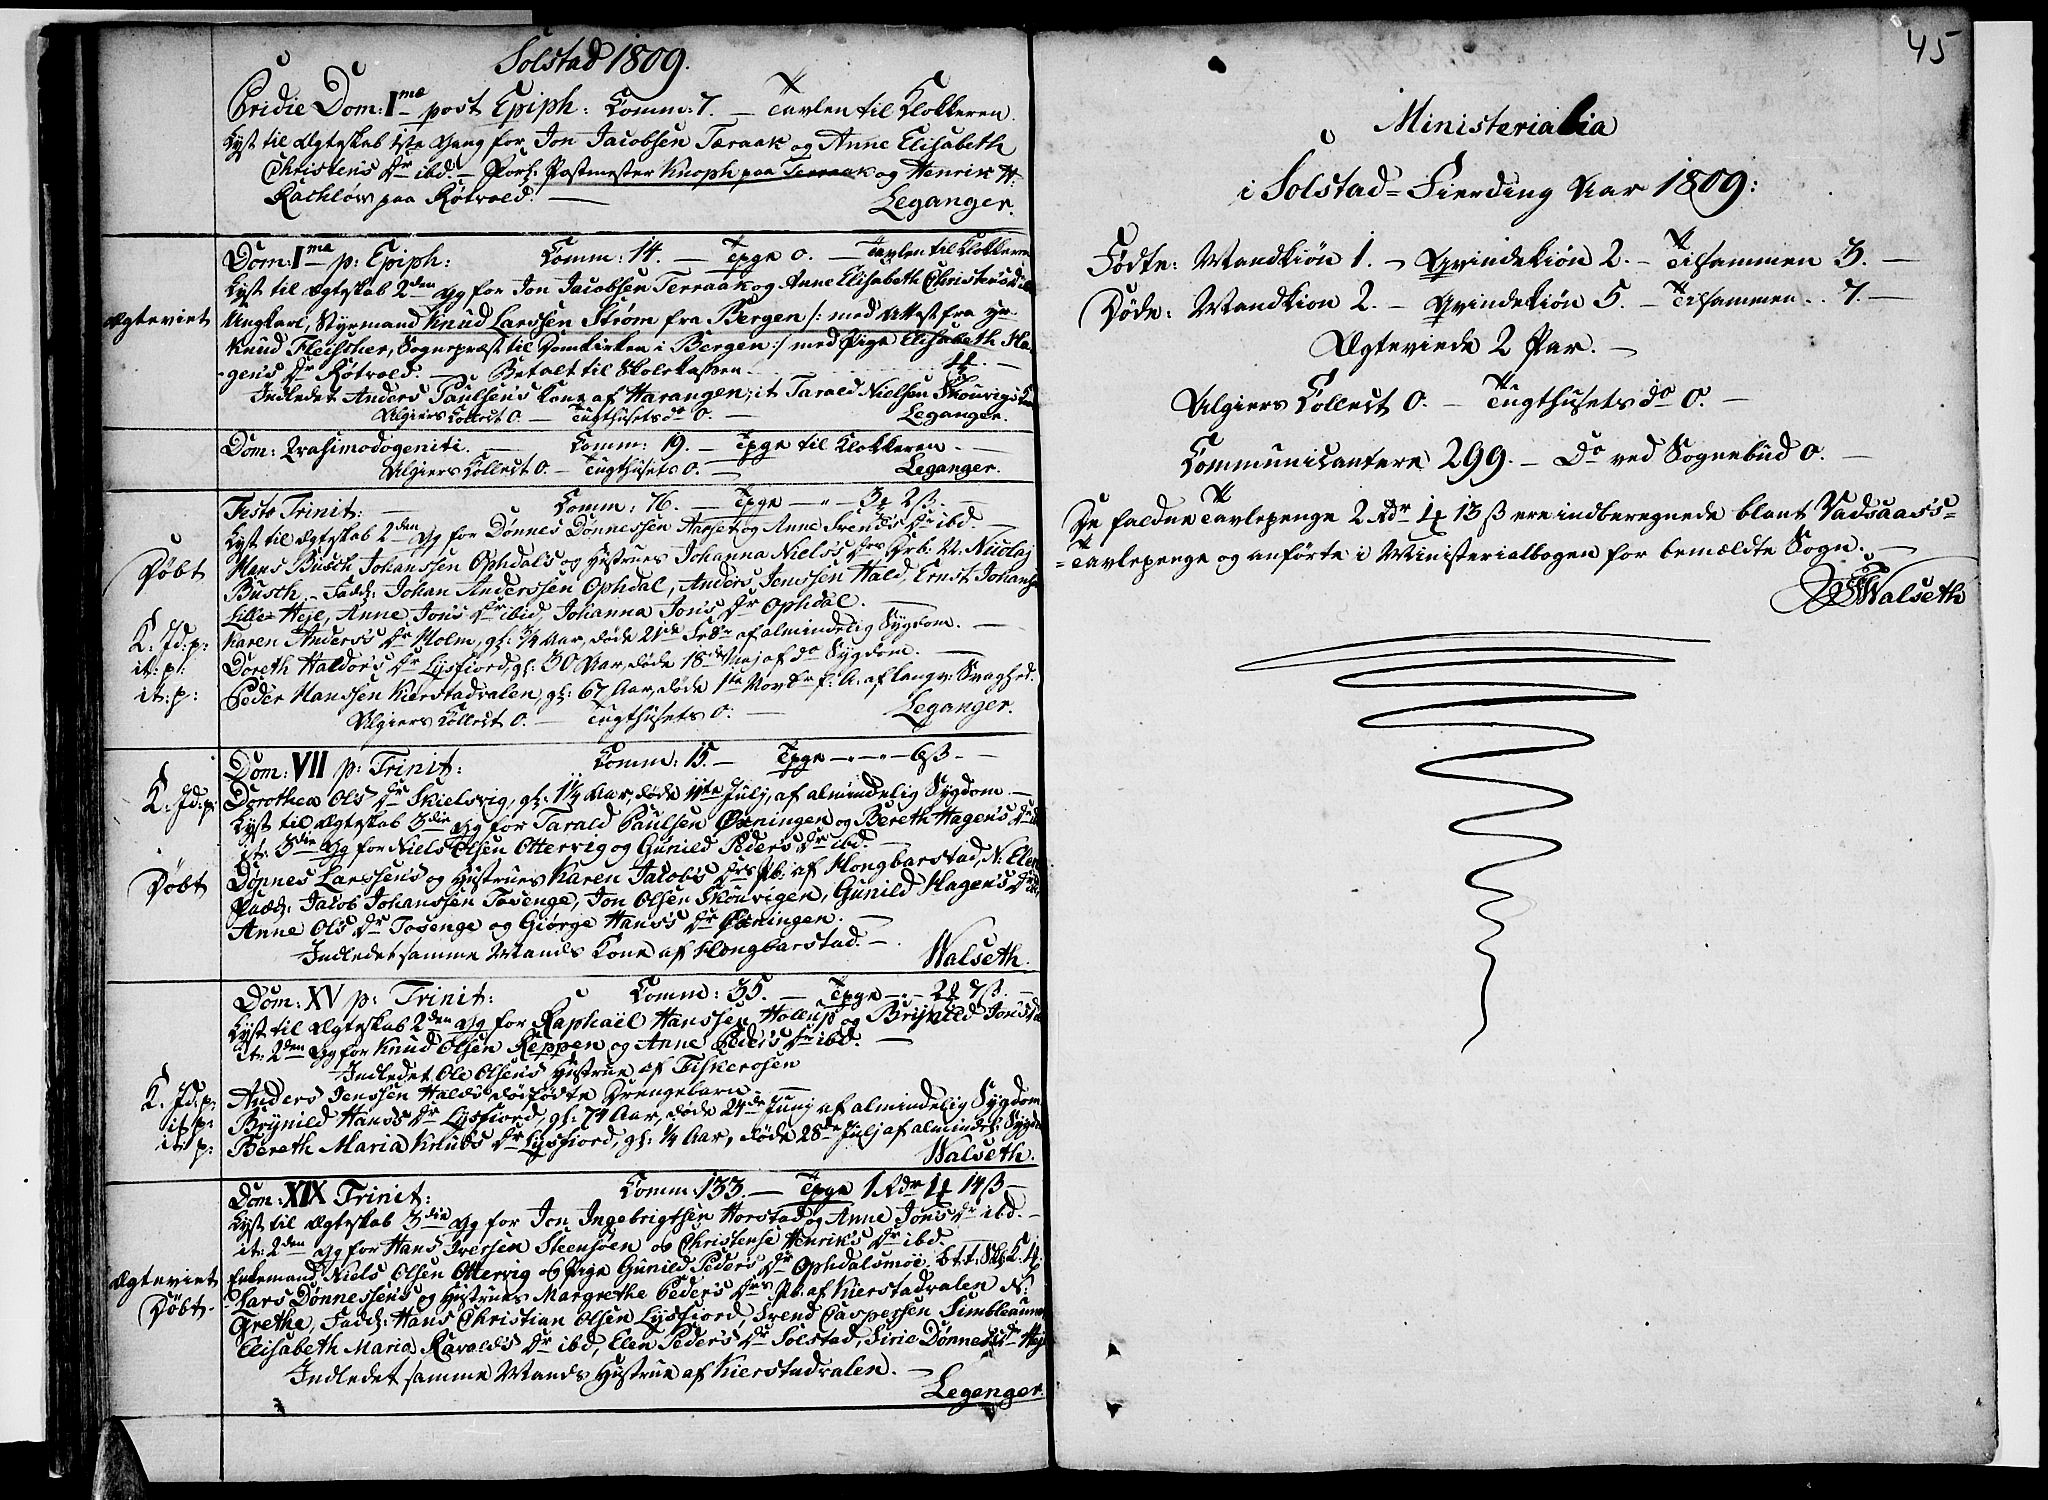 Solstad 1809.
Pridie Dom: I<sup>mæ</sup> post Epiph: Comm: 7. — Tavlen til Klokkeren.
Lyst til Ægteskab 1ste Gang for Jon Jacobsen Teraak og Anne Elisabeth
Christens Dr ibd. — Forl: Postmester Knoph paa Terraak og Henrik H:
Rachlöw paa Røtvold. — Leganger.
Dom: I<sup>ma</sup> p: Epiph: Comm: 14. — Tpge 0. — Tavlen til Klokkeren
Lyst til Ægteskab 2den Gg for Jon Jacobsen Terraak og Anne Elisabeth Christens Dr ibd
Ægteviet Ungkarl, Styrmand Knud Larssen Strøm fra Bergen /: med Attest fra Hr.
Knud Fleischer, Sognepræst til Domkirken i Bergen :/ med Pige Elisabeth Ha-
gens Dr Røtvold. — Betalt til Skolekassen
Indledet Anders Paulsens Kone af Harangen; it Tarald Nielsen Skouvigs Kone
Algiers Collect 0. — Tugthusets do 0. — Leganger.
Dom: Qvasimodogeniti. — Comm: 19. — Tpge til Klokkeren. —
Algiers Collect 0. — Tugthusets 0. — Leganger.
Festo Trinit: — Comm: 76. — Tpge — „ — 3 2ß. —
Lyst til Ægteskab 2den Gg for Dønnes Dønnessen Aarset og Anne Svends Dr ibd. —
Døbt Hans Busch Johanssen Ophdals og Hustrues Johanna Niels's Drs Drb: N. Nicolaj
Busch. — Fadd: Johan Anderssen Ophdal, Anders Jenssen Hald, Ernst Johans
Lille-Hejl, Anne Jons Dr ibid, Johanna Jons Dr Ophdal. —
K: Jd: p: Karen Anders's Dr Holm, gl: 3/4 Aar, døde 21de Febr af almindelig Sygdom. —
it: p: Doreth Haldors Dr Lysfiord, gl: 30 Aar, døde 18de Maj af do Sygdom. —
it: p: Peder Hanssen Kierstadvalen, gl: 67 Aar, døde 1ste Novbr f: A: af langv: Svaghed.
Algiers Collect 0. — Tugthusets 0. — Leganger.
Dom: VII p: Trinit: Comm: 15. — Tpge — „ — 6ß. —
K: Jd: p: Dorothea Ols Dr Skielsvig, gl: 1 1/4 Aar, døde 11te Julj, af almindelig Sygdom. —
Lyst til Ægteskab 3die Gg for Tarald Paulsen Øxningen og Bereth Hagens Dr ibd
it: 3die Gg for Niels Olsen Ottervig og Gunild Peders Dr ibd. —
Døbt Dønnes Larssens og Hustrues Karen Jacobs Drs Pb: af Hongbarstad, N: Elen
Fadd: Jacob Johanssen Tosenge, Jon Olsen Skouvigen, Gunild Hagens Dr ibd
Anne Ols Dr Tosenge og Giørge Hans's Dr Øxningen. —
Indledet samme Mands Kone af Hongbarstad. — Walseth.
Dom: XV p: Trinit: Comm: 35. — Tpge — „ — 2 7ß. —
Lyst til Ægteskab 2den Gg for Raphaël Hanssen Hollup og Brynild Jons Dr
it: 2den Gg for Knud Olsen Reppen og Anne Peders Dr ibd. —
Indledet Ole Olsens Hustrue af Fiskerosen
K: Jd: p: Anders Jenssen Halds dødfødte Drengebarn. —
it p: Brynild Hans's Dr Lysfiord, gl: 74 Aar, døde 24de Junj af almindelig Sygdom
it: p: Bereth Maria Knuds Dr Lysfiord, gl: 1/4 Aar, døde 28de Julj af almindel: Sygd
Walseth.
Dom: XIX Trinit: Comm: 133. — Tpge 1 Rdr 4 14ß —
Lyst til Ægteskab 3die Gg for Jon Ingebrigtsen Horstad og Anne Jons Dr ibd. —
it: 2den Gg for Hans Iversen Steensøen og Christense Henriks Dr ibd.
Ægteviet Enkemand Niels Olsen Ottervig og Pige Gunild Peders Dr Ophdalsmøe. b:t:t: Sk: K: 4
Døbt Lars Dønnessens og Hustrues Margrethe Peders Drs Pb: af Kierstadvalen N:
Grethe, Fadd: Hans Christian Olsen Lysfiord, Svend Caspersen Simblea
Elisabeth Maria Ravalds Dr ibd, Elen Peders Dr Solstad, Sirie Dønnes Dr Hejl
Indledet samme Mands Hustrue af Kierstadvalen. —
Leganger.
45
Ministerialia
i Solstad-Fierding Aar 1809:
Fødte: Mandkiøn 1. — Qvindekiøn 2. — Tilsammen 3. —
Døde: Mandkiøn 2. — Qvindekiøn 5. — Tilsammen .. 7. —
Ægteviede 2 Par. —
Algiers Collect 0. — Tugthusets do 0. —
Communicantere 299. — Do ved Sognebud 0. —
De faldne Tavlepenge 2 Rdr 4 13 ß ere indberegnede blant Vadsaas's-
-Tavlepenge og anførte i Ministerialbogen for bemældte Sogn. —
Walseth